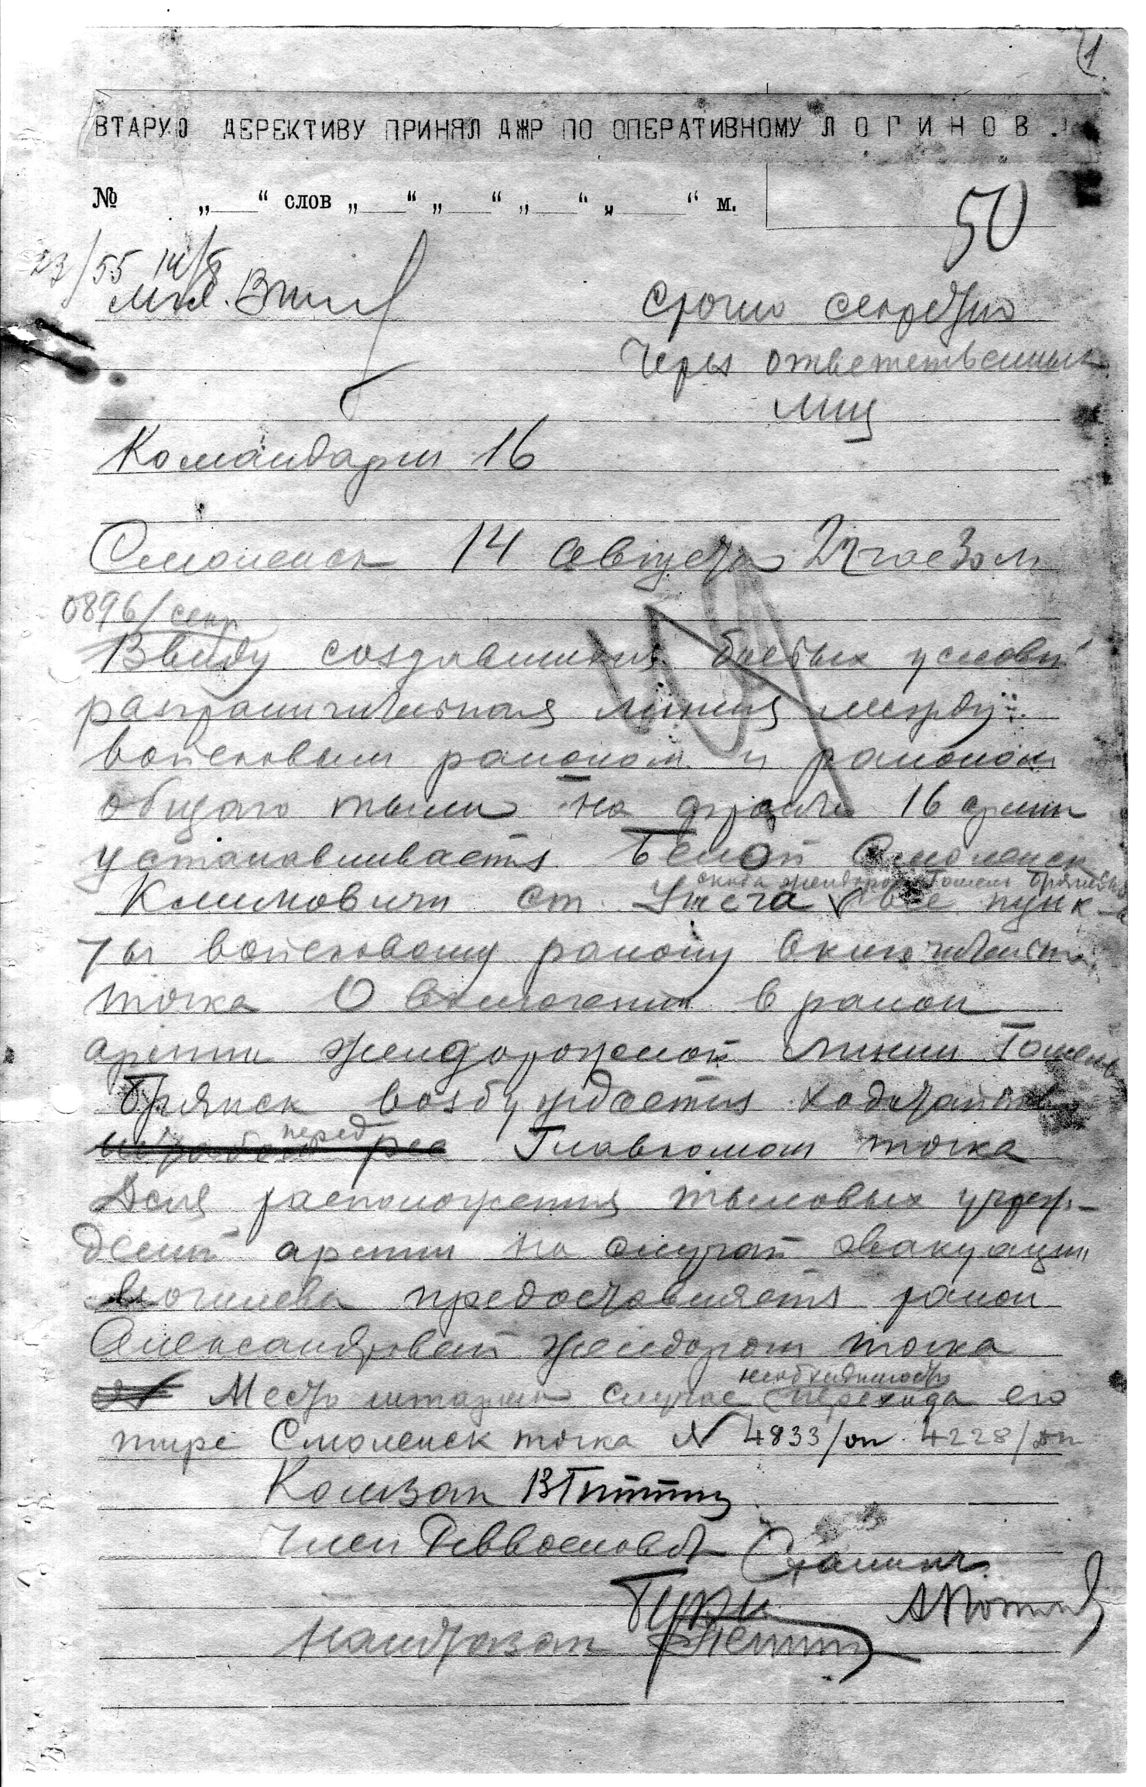 1
ВТАРУЮ ДЕРЕКТИВУ ПРИНЯЛ ДЖР ПО ОПЕРАТИВНОМУ ЛОГИНОВ.
№ „___“ слов „___“ „___“ „___“ „___“ м.
50
23/55 14/8
Срочно секретно
Через ответственных
лиц
Командарм 16
Смоленск 14 августа 22 час 30 м
0896/секр
Ввиду создавшихся боевых условий
разграничительная линия между
войсковым районом и районом
общего тыла на фронте 16 армии
устанавливается Белой Смоленск
Климовичи ст. Унеча все пунк-
ты войсковому району включительно
точка О включении в район
армии желдорожной линии Гомель
Брянск возбуждается ходатайство
перед Главкомом точка
Для расположения тыловых учреж-
дений армии на случай эвакуации
Могилева предоставляется район
Александровской желдороги точка
необходимости
Место штарма случае перехода его
тире Смоленск точка № 4833/оп 4228/оп
Комзап ВГиттис
Член Реввоенсовета Сталин
Наштазап Петин